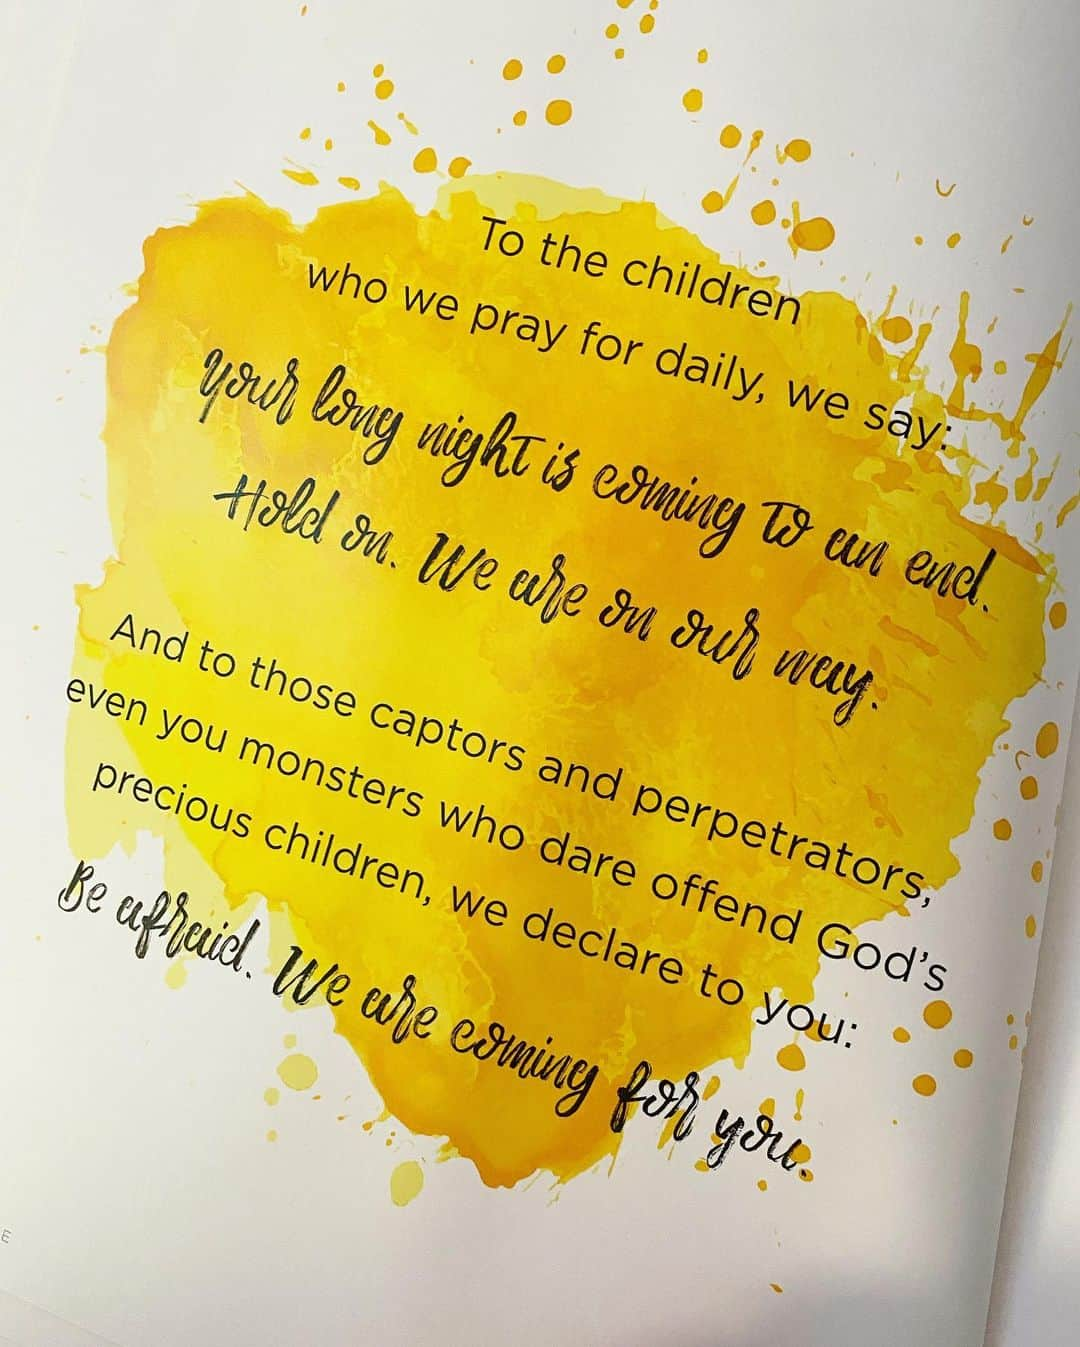 To the children
who we pray for daily, we say:
your long night is coming to an end.
Hold on. We are on our way.
And to those captors and perpetrators,
even you monsters who dare offend God's
precious children, we declare to you:
Be afraid. We are coming for you.
E